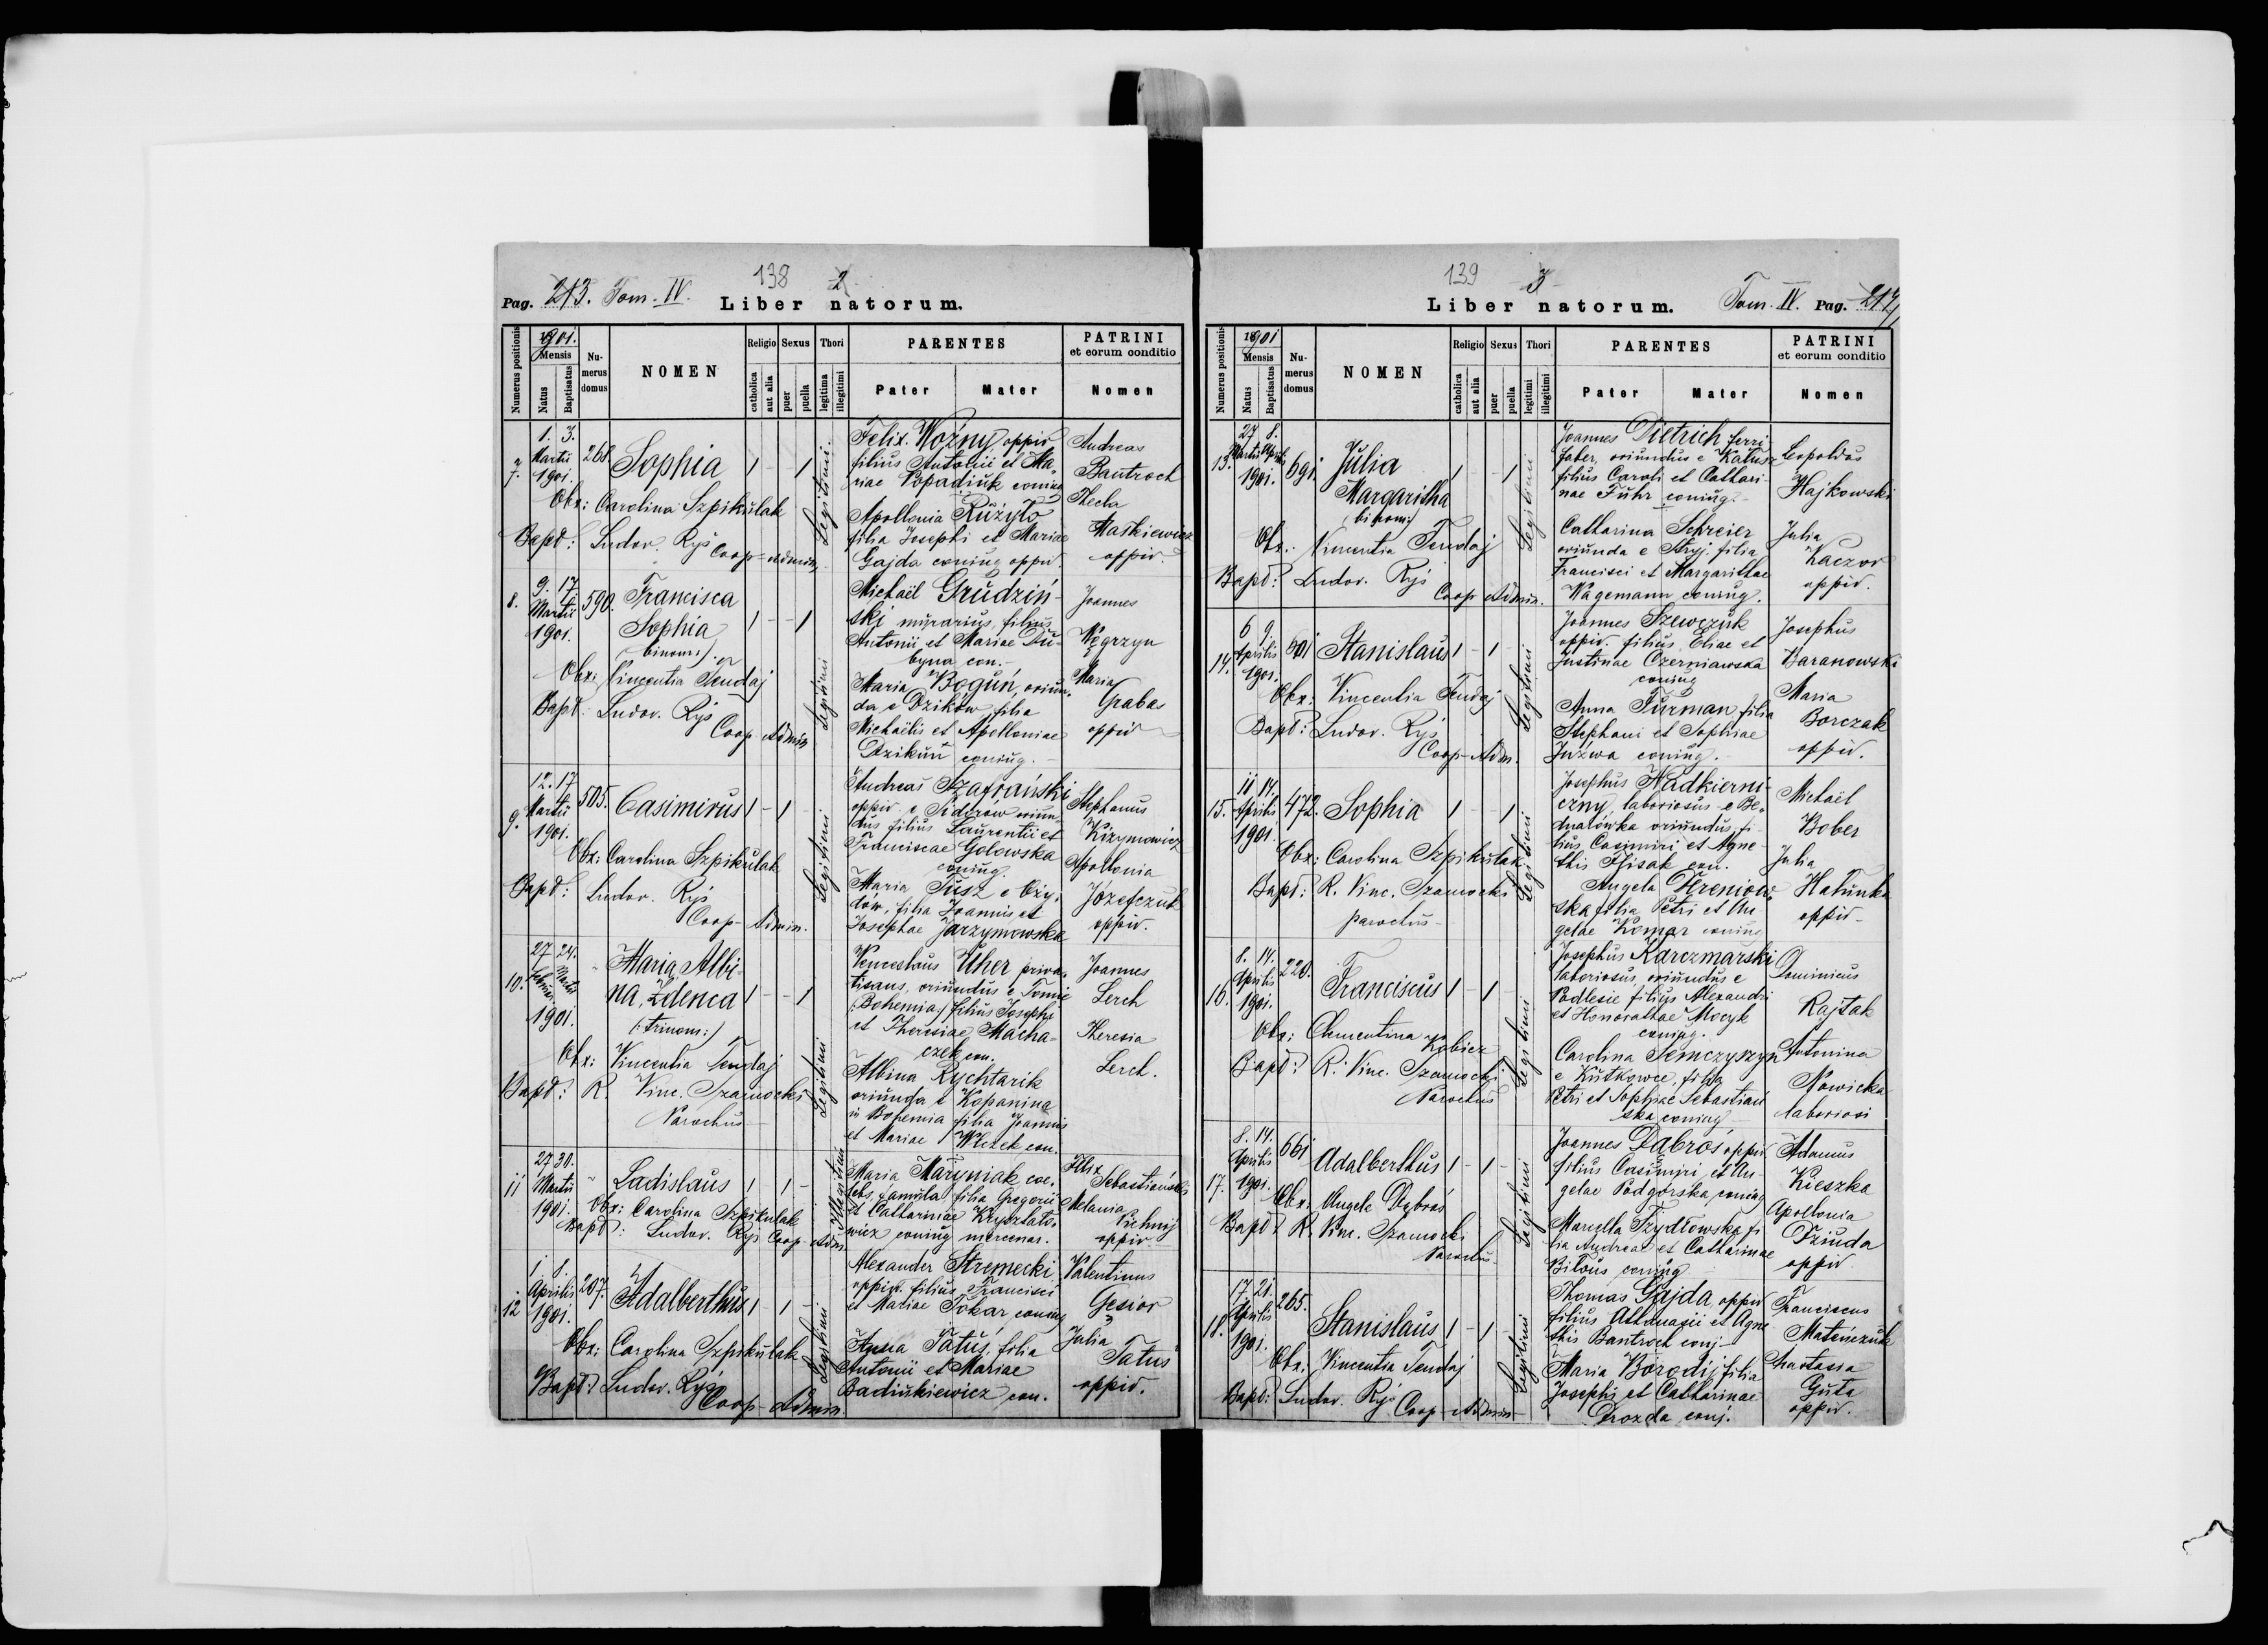 138 2
Pag. 213. Tom. IV. Liber natorum.
Numerus positionis
1901.
Mensis
Natus
Baptisatus
Numerus domus
NOMEN
Religio
catholica
aut alia
Sexus
puer
puella
Thori
legitima
illegitimi
PARENTES
Pater Mater
PATRINI
et eorum conditio
Nomen
7.
1. 3.
Martii
1901.
268.
Sophia 1 - - 1
Obx: Carolina Szpikulak
Bapt: Ludov. Ryś
Coop-Admin.
Legitimi
Felix Woźny oppid
filius Antonii et Ma-
riae Popadiuk coniug
Apollonia Rużyło
filia Josephi et Mariae
Gajda coniug oppid.
Andreas
Bautroch
Thecla
Maśkiewicz
oppid.
8.
9. 17.
Martii
1901.
590.
Francisca
Sophia
binom:).
1 - - 1
Obx: Vincentia Tendaj
Bapt: Ludov. Ryś
Coop-Admin
Legitimi
Michaël Grudziń-
ski murarius, filius
Antonii et Mariae Du-
byna con.
Maria Boguń, oriun-
da e Dzików filia
Michaëlis et Apolloniae
Dzikuń coniug.
Joannes
Węgrzyn
Maria
Grabas
oppid
9.
12. 17
Martii
1901.
505.
Casimirus 1 - 1 -
Obx: Carolina Szpikulak
Bapt: Ludov. Ryś
Coop-Admin.
Legitimi
Andreas Szafrański
oppid. e Sidorów oriun-
dus filius Laurentii et
Franciscae Golowska
coniug.
Maria Tusz e Oży-
dów, filia Joannis et
Josephae Jarzymowska
Stephanus
Kizymowicz
Apollonia
Józefczuk
oppid.
10.
27 24.
Februar. Martii
1901.
Maria Albi-
na, Zdenca
(:trinom:)
1 - - 1
Obx: Vincentia Tendaj
Bapt: R. Vinc. Szamocki
Parochus
Legitimi
Venceslaus Uher priva-
tisans, oriundus e Tomic
(Bohemia) filius Josephi
et Theresiae Macha-
czek con.
Albina Rychtarik
oriunda e Kopanina
in Bohemia filia Joannis
et Mariae Wlczek con.
Joannes
Lerch
Theresia
Lerch.
11
27 30.
Martii
1901.
Ladislaus 1 1 -
Obx: Carolina Szpikulak
Bapt: Ludov. Ryś Coop-Adm.
Illegitimi
Maria Maryniak coe-
lebs, famula filia Gregorii
et Catharinae Krysztafo-
wicz coniug mercenar.
Felix
Sebastiański
Melania
Pichnij
oppid.
12
1. 8.
Aprilis
1901.
207.
Adalberthus 1 - 1 -
Obx: Carolina Szpikulak
Bapt: Ludov. Ryś
Coop-Admin.
Legitimi
Alexander Stremecki
oppid. filius Francisci
et Mariae Tokar coniug
Anna Tatuś filia
Antonii et Mariae
Badiukiewicz con.
Valentinus
Gęsior
Julia
Tatuś
oppid.
139 3
Liber natorum. Tom. IV. Pag. 214
Numerus positionis
1901
Mensis
Natus
Baptisatus
Numerus domus
NOMEN
Religio
catholica
aut alia
Sexus
puer
puella
Thori
legitimi
illegitimi
PARENTES
Pater Mater
PATRINI
et eorum conditio
Nomen
13.
27 8.
Martii Aprilis
1901.
691
Julia
Margaritha
binom:)
1 - - 1
Obx: Vincentia Tendaj
Bapt: Ludov. Ryś
Coop Admin.
Legitimi
Joannes Dietrich ferri
faber, oriundus e Kałusz
filius Caroli et Cathari-
nae Fuhr coniug.
Catharina Schreier
oriunda e Stryj. filia
Francisci et Margarithae
Wagemann coniug.
Leopoldus
Hajkowski
Julia
Kaczor
oppid.
14.
6 9.
Aprilis
1901.
601
Stanislaus 1 - 1 -
Obx: Vincentia Tendaj
Bapt: Ludov. Ryś
Coop-Adm.
Legitimi
Joannes Szewczuk
oppid. filius Eliae et
Justinae Czerniawska
coniug
Anna Furman filia
Stephani et Sophiae
Juźwa coniug.
Josephus
Baranowski
Maria
Borczak
oppid.
15.
11 14.
Aprilis
1901.
472.
Sophia 1 - - 1
Obx: Carolina Szpikulak
Bapt: R. Vinc. Szamocki
parochus
Legitimi
Josephus Nadkierni-
czny laboriosus e Be-
dnarówka oriundus, fi-
lius Casimiri et Agne-
this con.
Angela Dereniow-
ska filia Petri et An-
gelae Komar coniug
Michaël
Bober
Julia
Hałunka
oppid
16.
8. 14.
Aprilis
1901.
220.
Franciscus 1 - 1 -
Obx: Clementina Kobicz
Bapt: R. Vinc. Szamocki
Parochus
Legitimi
Josephus Karczmarski
laboriosus, oriundus e
Podlesie filius Alexandri
et Honorathae Mocyk
coniug.
Carolina Semczyszyn
e Kutkowce, filia
Petri et Sophiae Sebastiań
ska coniug
Dominicus
Rajtak
Antonina
Nowicka
laboriosi
17.
8. 14.
Aprilis
1901.
661
Adalberthus 1 - 1 -
Obx: Angela Dąbroś
Bapt: R. Vinc. Szamocki
Parochus
Legitimi
Joannes Dąbroś oppid
filius Casimiri et An-
gelae Podgórska coniug
Marcella Szydłowska fi-
lia Andreae et Catharinae
Bilous coniug
Adamus
Kieszka
Apollonia
Dziuda
oppid
18.
17. 21.
Aprilis
1901.
265.
Stanislaus 1 - 1 -
Obx: Vincentia Tendaj
Bapt: Ludov. Ryś Coop-Admin
Legitimi
Thomas Gajda, oppid
filius Athanasii et Agne
this Bantroch conj-
Maria Borodij filia
Josephi et Catharinae
Drozda conj.
Franciscus
Mateńczuk
Anastasia
Guta
oppid.